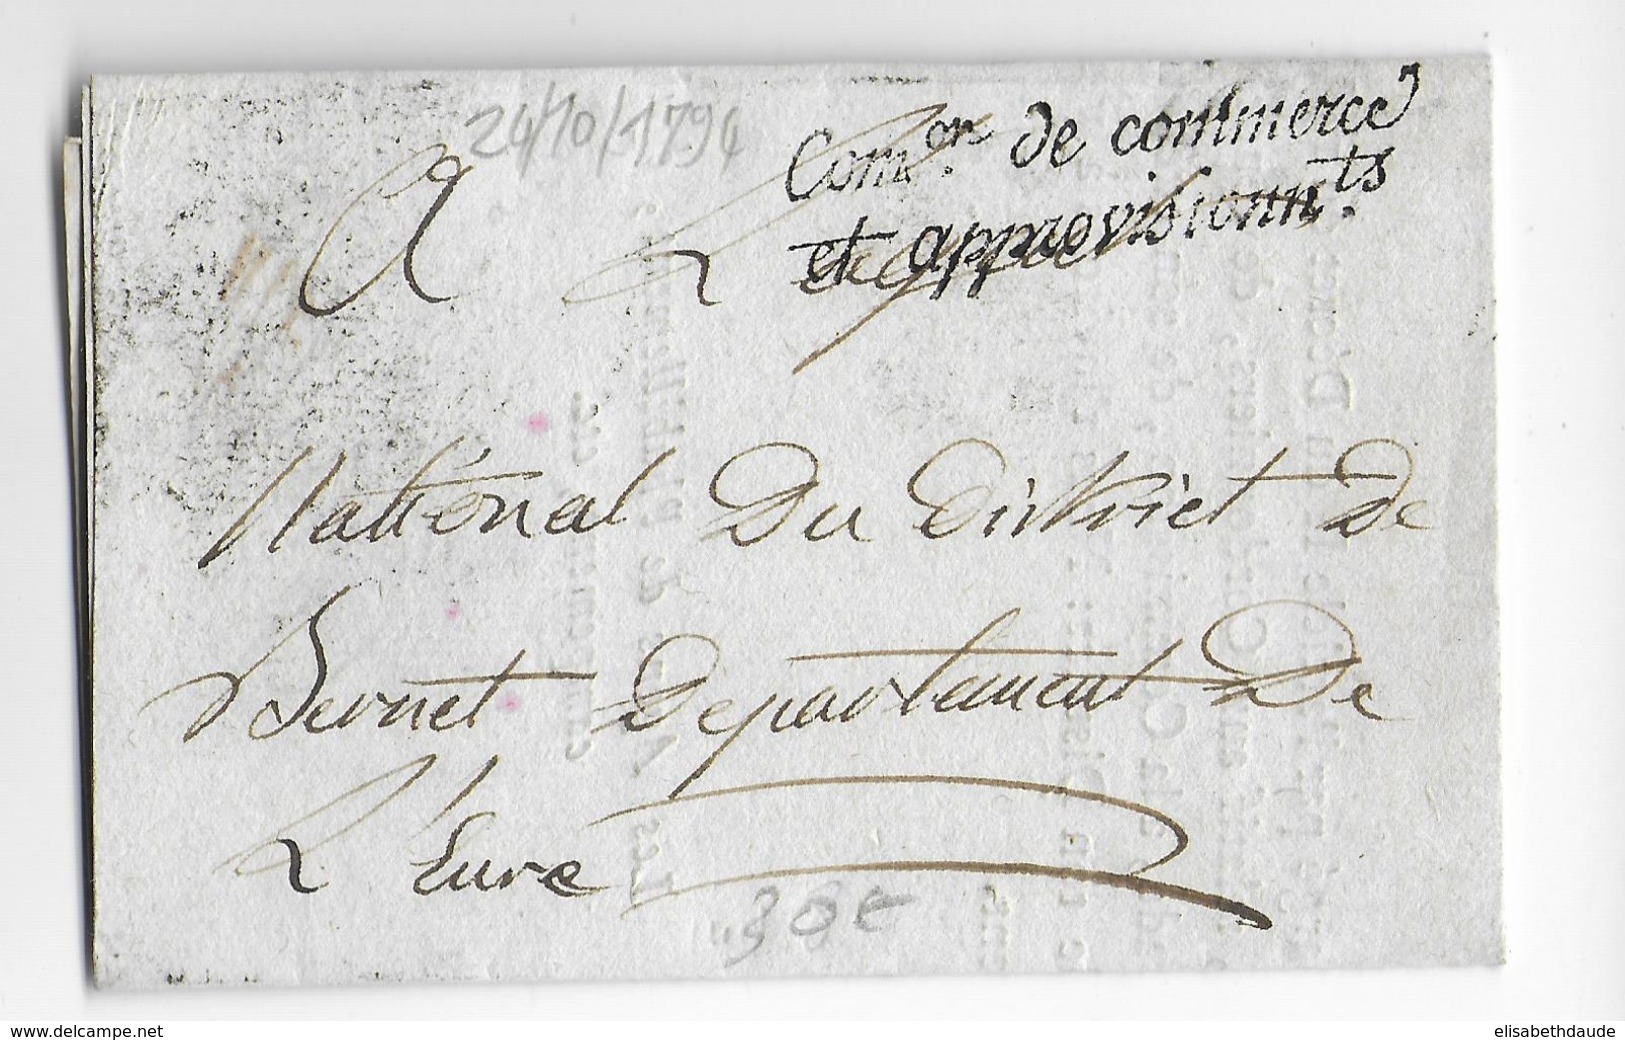 24/10/1794
Com.on de commerce
et approvisionn.ts
A L'
National Du District de
Bernet Departement De
L'Eure
30€
www.delcampe.net
elisabethdaude